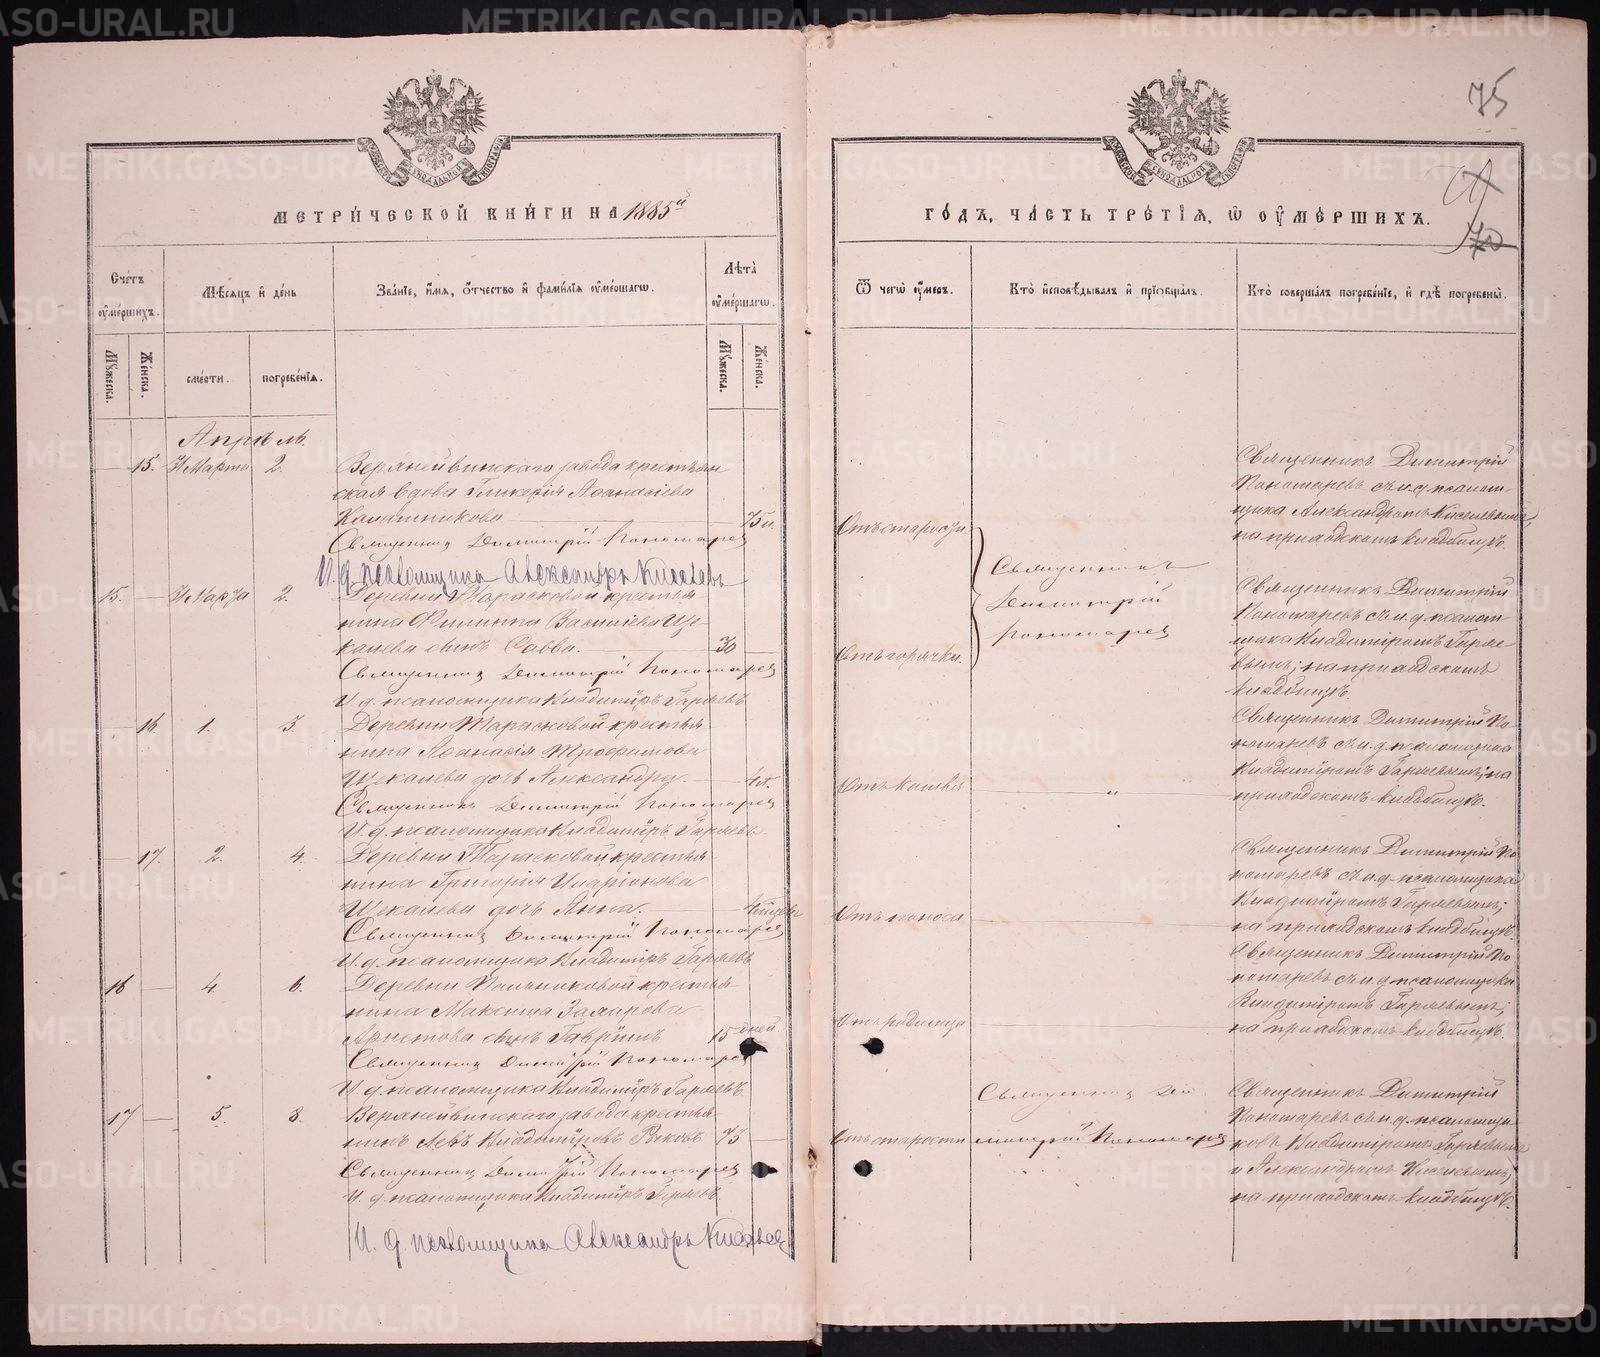 75
70
МЕТРИ́ЧЕСКОЙ КНИ́ГИ НА 1885й
ГО́ДЪ, ЧА́СТЬ ТРЕ́ТІѦ, Ѿ ОУ҆МЕ́РШИХЪ.
Сче́тъ оу҆ме́ршихъ.
Мѣ́сяцъ и҆ де́нь
Зва́ніе, и҆́мя, ѻ҆́тчество и҆ фами́лія оу҆ме́ршагѡ.
Лѣ́та оу҆ме́ршагѡ.
Ѿ чегѡ̀ оу҆́меръ.
Кто̀ и҆сповѣ́дывалъ и҆ прїѡбща́лъ.
Кто̀ соверша́лъ погребе́ніе, и҆ гдѣ̀ погребены̀.
Му́жеска.
Же́нска.
сме́рти.
погребе́нія.
Му́жеска.
Же́нска.
Апрѣль.
15. 31 Марта 2. Верхнейвинскаго завода крестьян
ская вдова Гликерія Аѳанасіева
Калашникова 75 л.
Священникъ Димитрій Пономаревъ
И. д. псаломщика Александръ Киселевъ
Отъ старости.
Священникъ
Димитрій
Пономаревъ
Священникъ Димитрій
Пономаревъ съ и. д. псалом-
щика Александромъ Киселевымъ,
на приходскомъ кладбищѣ.
15. 31 Марта 2. Деревни Тарасковой крестья-
нина Филиппа Васильева Ще-
калева сынъ Савва. 30
Священникъ Димитрій Пономаревъ
И. д. псаломщика Владиміръ Гаряевъ
Отъ горячки.
Священникъ Димитрій
Пономаревъ съ и. д. псалом-
щика Владиміромъ Гаряе-
вымъ; на приходскомъ
кладбищѣ.
16. 1. 3. Деревни Тарасковой крестья-
нина Аѳанасія Трофимова
Щекалева дочь Александра. 4 г.
Священникъ Димитрій Пономаревъ
И. д. псаломщика Владиміръ Гаряевъ.
Отъ кашля
"
Священникъ Димитрій По-
номаревъ съ и. д. псаломщика
Владиміромъ Гаряевымъ; на
приходскомъ кладбищѣ.
17. 2. 4. Деревни Тарасковой крестья-
нина Григорія Иларіонова
Щекалева дочь Анна.
Священникъ Димитрій Пономаревъ
И. д. псаломщика Владиміръ Гаряевъ
Отъ поноса
Священникъ Димитрій По-
номаревъ съ и. д. псаломщика
Владиміромъ Гаряевымъ;
на приходскомъ кладбищѣ.
16 4. 6. Деревни Пальниковой крестья-
нина Максима Захарова
Аристова сынъ Гавріилъ 15 дней
Священникъ Димитрій Пономаревъ
И. д. псаломщика Владиміръ Гаряевъ.
Отъ родимца
Священникъ Димитрій По-
номаревъ съ и. д. псаломщика
Владиміромъ Гаряевымъ;
на приходскомъ кладбищѣ.
17 5. 8. Верхнейвинскаго завода крестья-
нинъ Левъ Владиміровъ Рековъ 73
Священникъ Димитрій Пономаревъ
И. д. псаломщика Владиміръ Гаряевъ.
И. д. псаломщика Александръ Киселевъ
Отъ старости
Священникъ Ди-
митрій Пономаревъ
Священникъ Димитрій
Пономаревъ съ и. д. псаломщи-
ковъ Владиміромъ Гаряевымъ
и Александромъ Киселевымъ;
на приходскомъ кладбищѣ.
METRIKI.GASO-URAL.RU